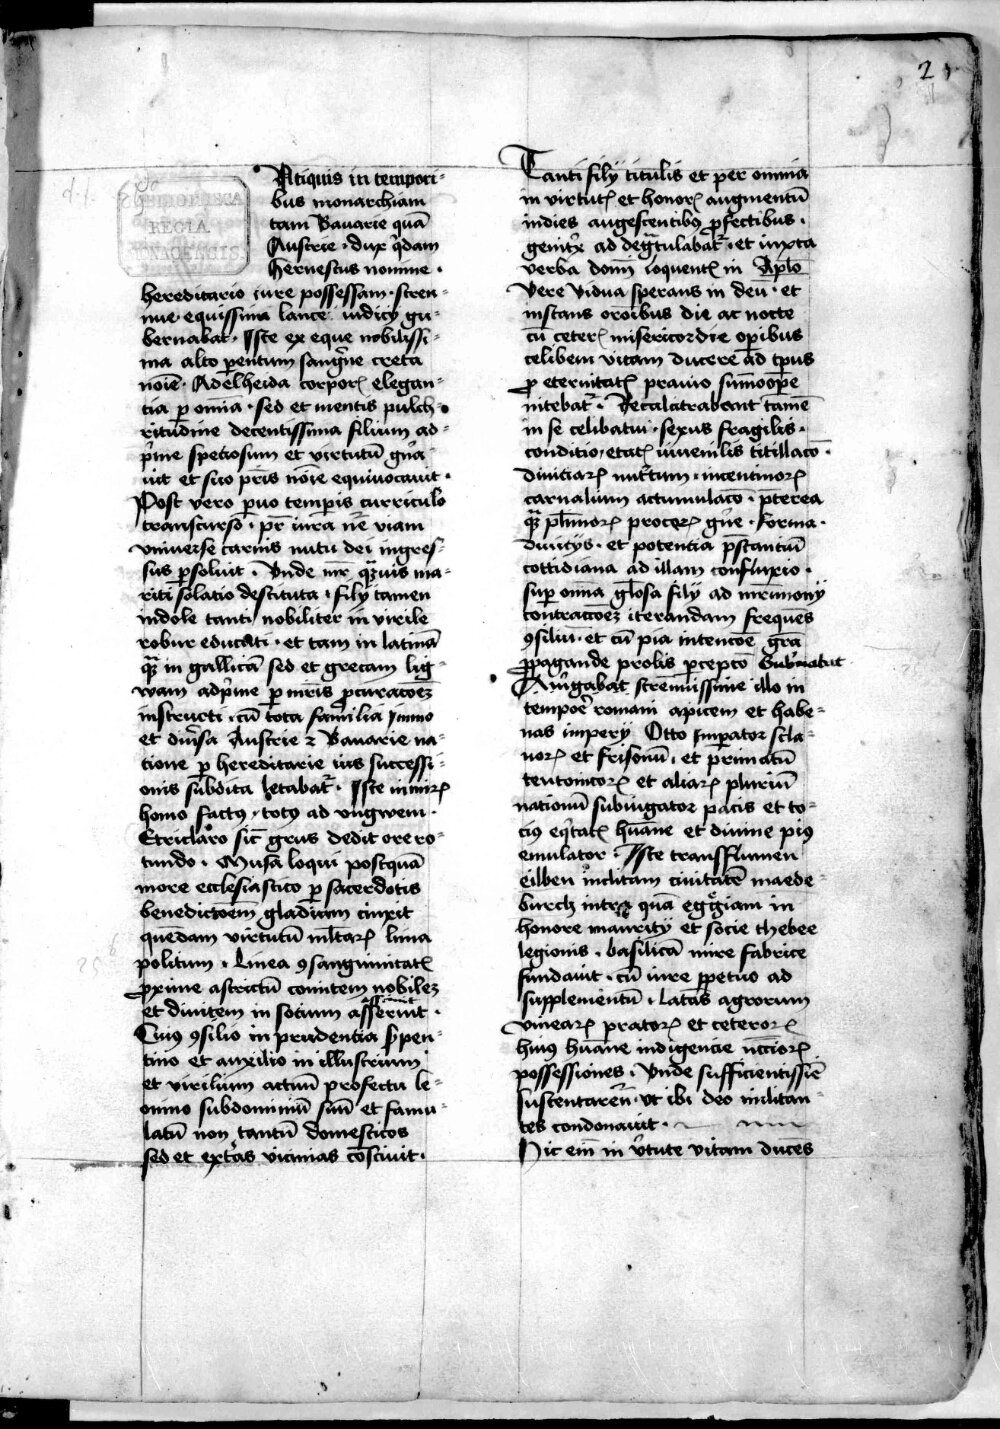 2
BIBLIOTHECA
REGIA
MONACENSIS
Ntiquis in tempori-
bus monarchiam
tam Bauarie quā
Austrie · dux q̄dam
Hernestus nomine ·
hereditario iure possessam · stren-
nue equissima lance iudicij gu-
bernabat · Iste ex eque nobilissi-
ma alto parentum sangwine creta
noīe · Adelheida corpor̄ elegan-
tia ꝑ om̄ia · sed et mentis pulch-
ritudine decentissima filium ad-
p̄me speciosum et virtutū gna-
uit et suo pr̄is noīe equiuocauit ·
Post vero ꝑuo temp̄is curriculo
transcurso · pr̄ iura nr̄e viam
vniuerse carnis nutu dei ingres-
sus ꝑsoluit · Vnde mr̄ qͣuis ma-
riti solatio destituta · filij tamen
indole tanti nobiliter in virile
robur educati · et tam in latinā
qͣ in gallicā sed et grecam lig-
wam adp̄me ꝑ mr̄is ꝓcuratoēꝫ
instructi · cū tota familia ymmo
et diu̾sa Austrie ⁊ Bauarie na-
tione ꝑ hereditarie ius successi-
onis subdita letabat᷑ · Iste in mir̄
homo factꝰ · totꝰ ad vngwem ·
Et riclaro sic̄ grus dedit ore ro-
tundo · Musa loqui postquā
more ecclesiastico ꝑ sacerdotis
benedictoēm gladium cinxit
quēdam virtutū ml̄tar̄ lima
politum · Linea ꝯsangwinitat̄
ꝓxime astrictū comitem nobileꝫ
et diuitem in socium asseruit ·
Cuiꝰ ꝯsilio in prudentia s̾pen-
tino et auxilio in illustrium
et virilium actuū profectu le-
onino subdominiū suū et famu-
latū non tantū domesticos
sed et ext̾as vicinias cōsciuit ·
Tanti filij titulis et per omnia
in virtut̄ et honor̄ augmentū
indies augescentibꝰ ꝓfectibus ·
genit̾x ad degͣtulabat᷑ · et iuxta
verba dom̄i loquent̄ in Apl̄o
Vere vidua sperans in deū · et
instans or̄oibus die ac nocte
cū ceter̄ misericordie oꝑibus
celibem vitam ducere ad tp̄us
ꝓ eternitat̄ prauio sūmoop̄e
nitebat᷑ · Recalcitrabant tamē
in se celibatui · sexus fragilis ·
conditio etat̄ iuuenilis titillacō ·
diuiciar̄ mr̄tum · incentiuor̄
carnalium actumulacō · p̄terea
qͣ pl̄imor̄ procer̄ gn̄e · forma ·
diuitijs · et potentia p̄stantiū
cottidiana ad illam confluxio ·
suꝑ om̄ia gl̄osa filij ad mr̄imonij
contractoēꝫ iterandam frequēs
ꝯsiliū · et cū pia intencoē gr̄a
ꝓpagande prolis ꝑcepto Gub̾nabat
Aurigabat strennuissime illo in
tempor̄e romani apicem et habe-
nas imperij Otto Imperator scla-
uor̄ et frisonū · et primatū
teutonicor̄ et aliar̄ pluriū
nationū subiugator pacis et to-
ciꝰ eq̄tat̄ hūane et diuine piꝰ
emulator · Iste trans flumen
eilben inclitam ciuitatē maede-
burch quā egͣgiam in
honore maurity et socie thebee
legionis · basilicā mire fabrice
fundauit · cū iure ꝑpetuo ad
supplementū · latas agrorum
vinear̄ prator̄ et ceteror̄
huiꝰ hūane indigencie nccior̄
possessiones · Vnde sufficientissīe
sustentaren̄t · vt ibi deo militan-
tes condonauit ·
Hic em̄ in v̾tute vitam duces